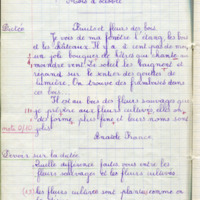 Mois d'octobre
Dictée
Fruits et fleurs des bois.
Je vois de ma fenêtre l'étang, les bois
et les châteaux. Il y a
un joli bouquet de hêtres qui chante au
moindre vent. Le soleil les
répand sur le sentier des gouttes de
lumière. On trouve des framboises dans
ces bois.
Il est au bois des fleurs sauvages que
je préfère aux fleurs cultivées, elles ont
de forme plus fine et leurs noms sont
jolis.
Anatole France
Devoir sur la dictée.
Quelle différence faites-vous entre les
fleurs sauvages et les fleurs cultivées
les fleurs cultivées sont plantées comme on